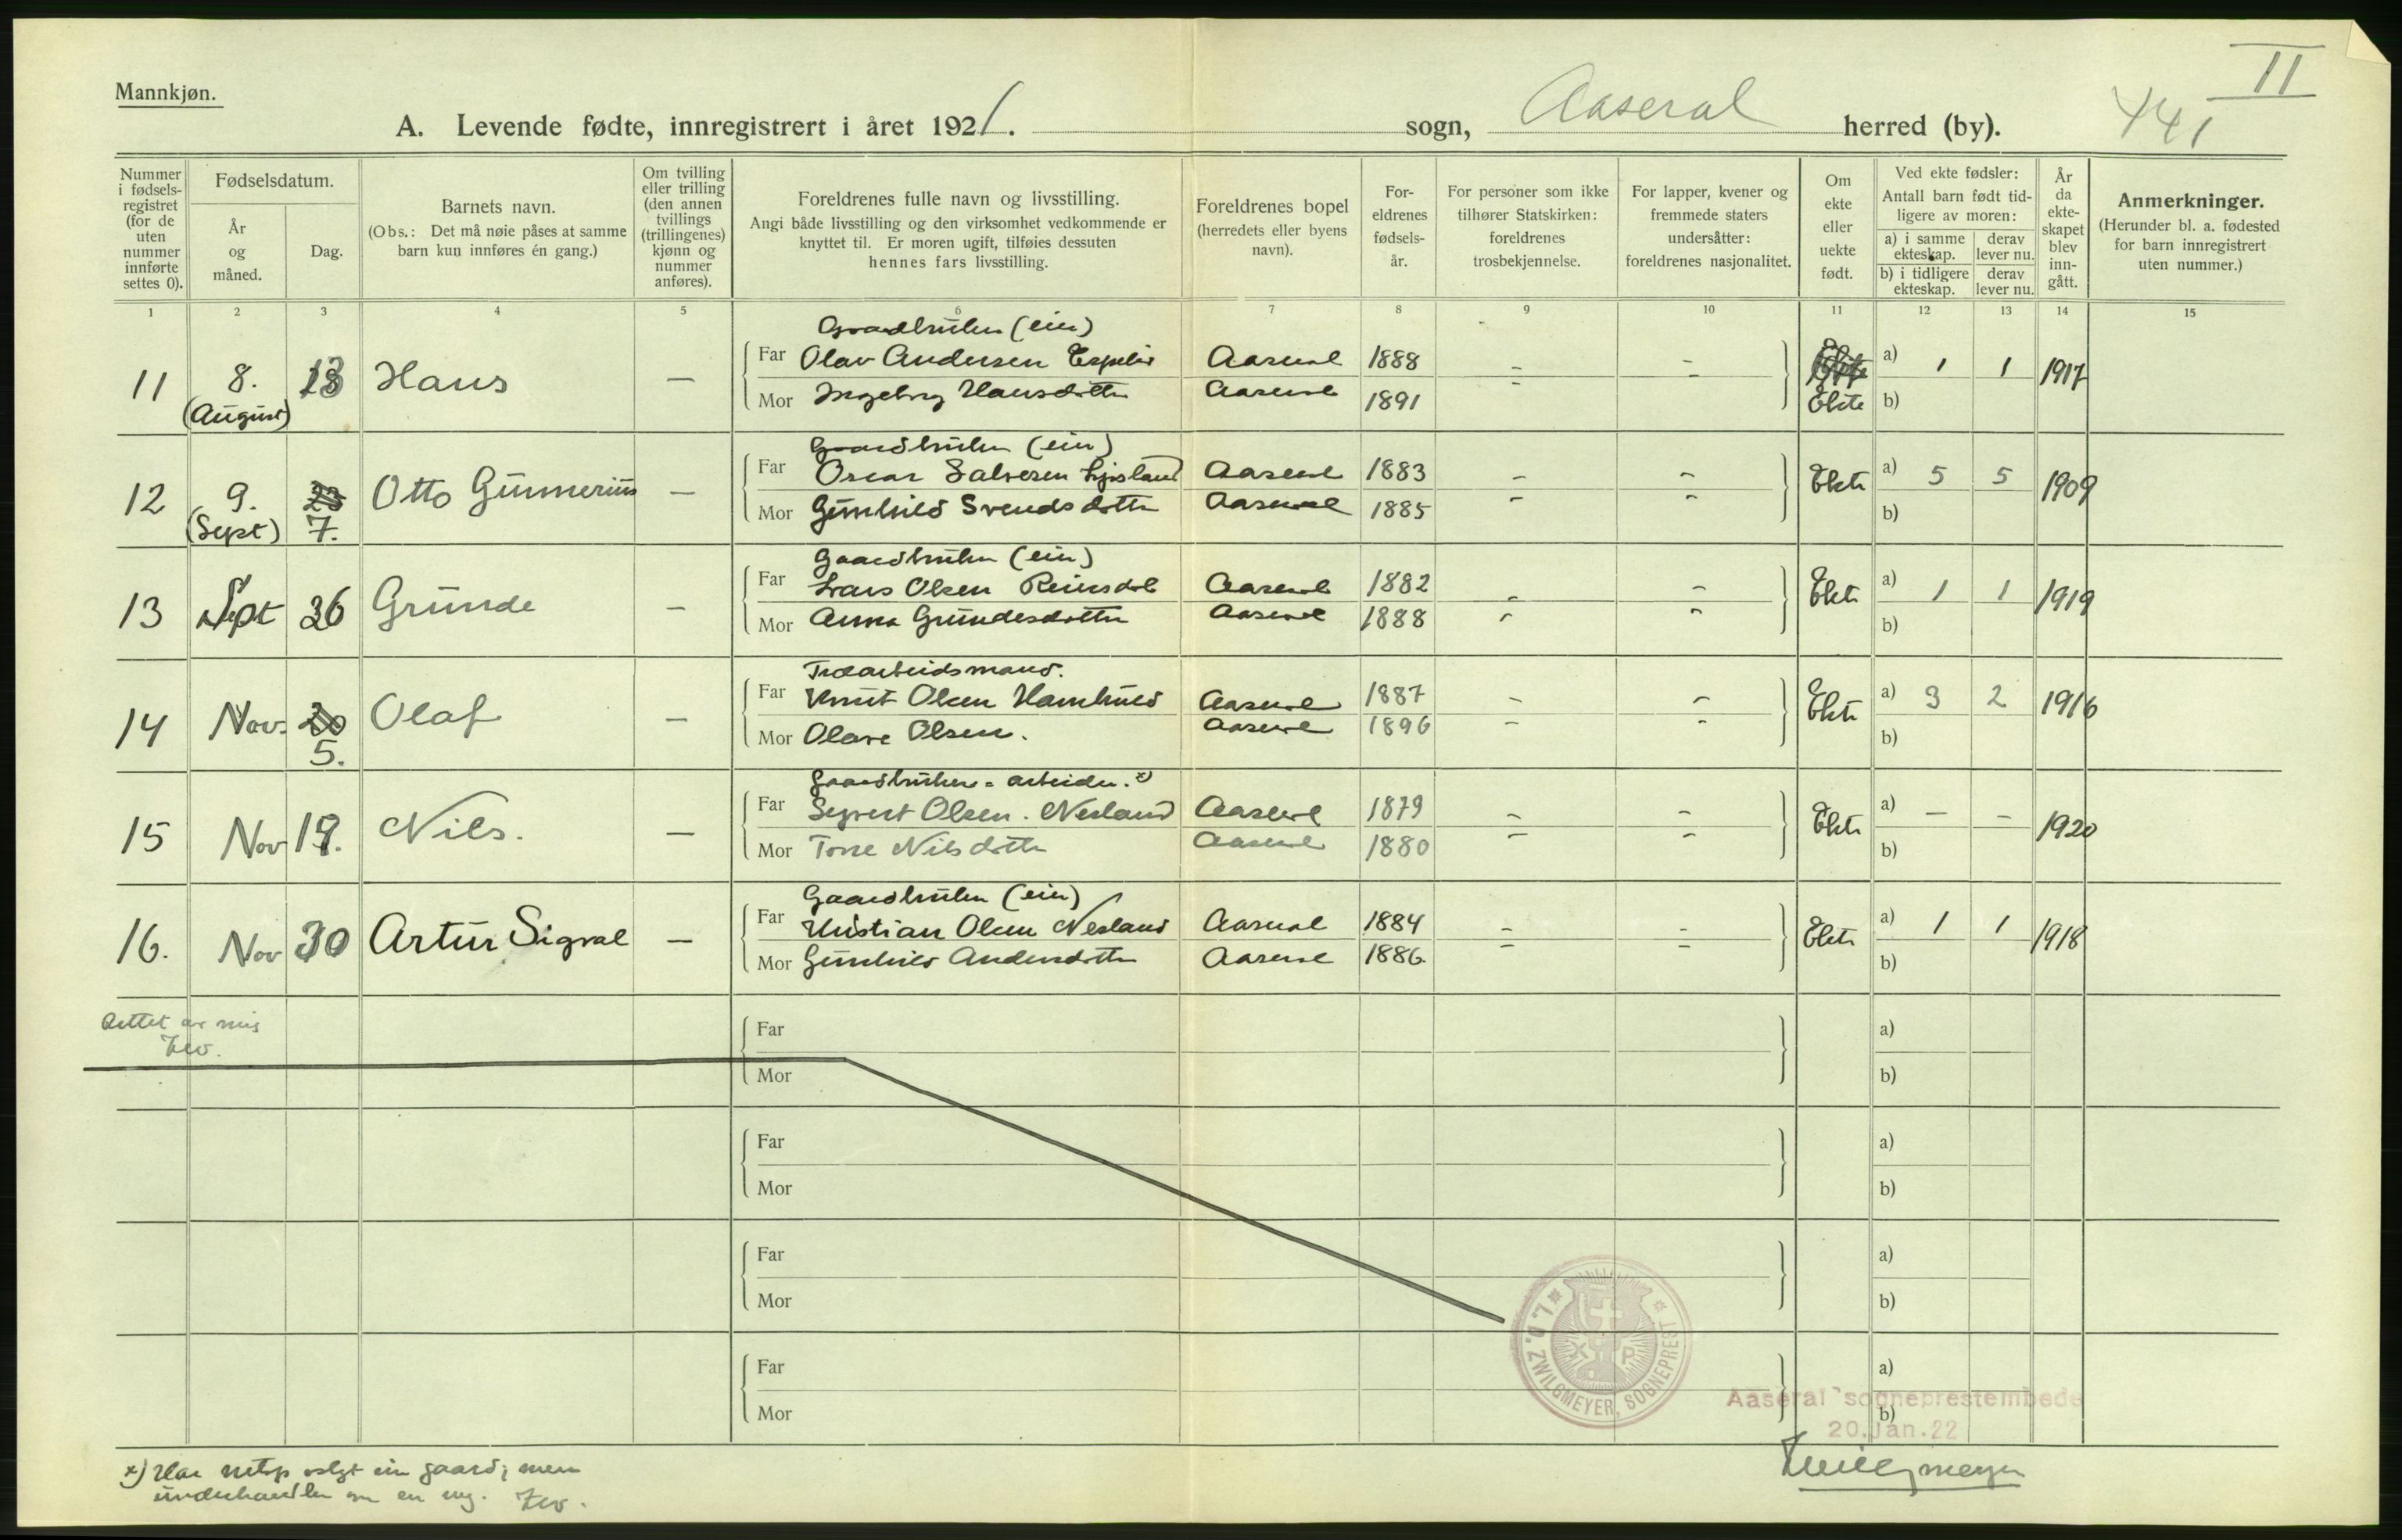 II
Mannkjøn.
A. Levende fødte, innregistrert i året 1921. sogn, Aaseral herred (by). 441
Nummer i fødsels-registret (for de uten nummer innførte settes 0).
Fødselsdatum.
År og måned.
Dag.
Barnets navn.
(Obs.: Det må nøie påses at samme barn kun innføres én gang.)
Om tvilling eller trilling (den annen tvillings (trillingenes) kjønn og nummer anføres).
Foreldrenes fulle navn og livsstilling.
Angi både livsstilling og den virksomhet vedkommende er knyttet til. Er moren ugift, tilføies dessuten hennes fars livsstilling.
Foreldrenes bopel (herredets eller byens navn).
For-eldrenes fødsels-år.
For personer som ikke tilhører Statskirken: foreldrenes trosbekjennelse.
For lapper, kvener og fremmede staters undersåtter: foreldrenes nasjonalitet.
Om ekte eller uekte født.
Ved ekte fødsler:
Antall barn født tid-ligere av moren:
a) i samme ekteskap.
derav lever nu.
b) i tidligere ekteskap.
derav lever nu.
År da ekte-skapet blev inn-gått.
Anmerkninger.
(Herunder bl. a. fødested for barn innregistrert uten nummer.)
1 2 3 4 5 6 7 8 9 10 11 12 13 14 15
Gaardbruker (eier)
11 8. (August) 18 Hans — Far Olav Andersen Espelid Aaseral 1888 - - a) 1 1 1917
Mor Ingeborg Hansdatter Aaseral 1891 - Ekte b)
Gaardbruker (eier)
12 9. (Sept) 23 7. Otto Gunnerius — Far Oscar Salvesen Ljosland Aaseral 1883 - - Ekte a) 5 5 1909
Mor Gunhild Svendsdatter Aaseral 1885 - - b)
Gaardbruker (eier)
13 Sept 26 Grunde — Far Lars Olsen Reinsdal Aaseral 1882 - - Ekte a) 1 1 1919
Mor Anna Grundesdatter Aaseral 1888 - - b)
Træarbeidsmand.
14 Nov. 20 5. Olaf — Far Knut Olsen Aaseral 1887 - - Ekte a) 3 2 1916
Mor Olave Olsen. Aaseral 1896 - - b)
Gaardbruker = arbeider. x)
15 Nov 19. Nils. — Far Syvert Olsen. Nesland Aaseral 1879 - - Ekte a) — - 1920
Mor Torre Nilsdatter Aaseral 1880 - - b)
Gaardbruker (eier)
16. Nov 30 Artur Sigval — Far Kristian Olsen Nesland Aaseral 1884 - - Ekte a) 1 1 1918
Mor Gunhild Andersdatter Aaseral 1886. - - b)
Rettet av mig
Zw.
Far a)
Mor b)
Far a)
Mor b)
Far a)
Mor b)
Far a)
Mor b)
* L. D. ZWILGMEYER, SOGNEPREST *
X P
Aaseral sogneprestembede
20. Jan. 22
Zwilgmeyer
x) Har netop solgt sin gaard; men
underhandler om en ny. Zw.